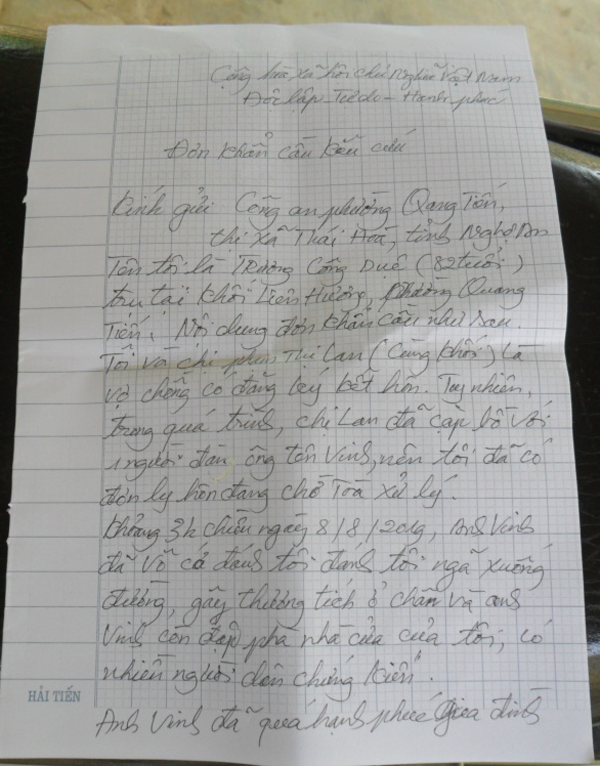 Cộng hòa xã hội chủ nghĩa Việt Nam
Độc lập - Tự do - Hạnh phúc
Đơn khẩn cầu kêu cứu
Kính gửi Công an phường Quang Tiến,
thị xã Thái Hoà, tỉnh Nghệ An
Tên tôi là Trương Công Duê (82 tuổi)
trụ tại khối Liên Hương, phường Quang
Tiến. Nội dung đơn khẩn cầu như sau.
Tôi và chị Phan Thị Lan (Cùng khối) là
vợ chồng có đăng ký kết hôn. Tuy nhiên,
trong quá trình, chị Lan đã cặp bồ với
1 người đàn ông tên Vinh, nên tôi đã có
đơn ly hôn đang chờ Toà xử lý.
Khoảng 3h chiều ngày 8/8/2019, Anh Vinh
đã vô cớ đánh tôi đánh tôi ngã xuống
đường, gây thương tích ở chân và anh
Vinh còn đập phá nhà cửa của tôi, có
nhiều người dân chứng kiến.
HẢI TIẾN
Anh Vinh đã quá hạnh phúc gia đình